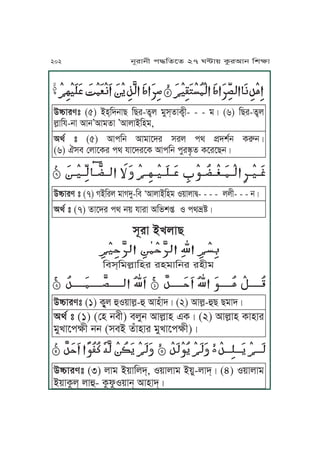 ২০২ নূরানী পদ্ধতিতে ২৭ ঘণ্টায় কুরআন শিক্ষা
اِهْدِنَا الصِّرَاطَ الْمُسْتَقِيْمَ ۝ صِرَاطَ الَّذِيْنَ اَنْعَمْتَ عَلَيْهِمْ ۝
উচ্চারণঃ (৫) ইহ্‌দিনাছ ছিরা-ত্বল মুস্‌তাক্বী- - - ম। (৬) ছিরা-ত্বল
ল্লাযি-না আন'আমতা 'আলাইহিম,
অর্থ ঃ (৫) আপনি আমাদের সরল পথ প্রদর্শন করুন।
(৬) ঐসব লোকের পথ যাদেরকে আপনি পুরস্কৃত করেছেন।
غَيْرِ الْمَغْضُوْبِ عَلَيْهِمْ وَلَا الضَّآلِّيْنَ ۝
উচ্চারণ ঃ (৭) গইরিল মাগদূ-বি 'আলাইহিম ওয়ালাদ্ব- - - - ললী- - - ন।
অর্থ ঃ (৭) তাদের পথ নয় যারা অভিশপ্ত ও পথভ্রষ্ট।
সূরা ইখলাছ
بِسْمِ اللهِ الرَّحْمٰنِ الرَّحِيْمِ
বিসমিল্লাহির রহমানির রহীম
قُلْ هُوَ اللهُ اَحَدٌ ۝ اَللهُ الصَّمَدُ ۝
উচ্চারণঃ (১) কুল হুওয়াল্ল-হু আহাদ। (২) আল্ল-হুছ ছমাদ।
অর্থ ঃ (১) (হে নবী) বলুন আল্লাহ এক। (২) আল্লাহ কাহার
মুখাপেক্ষী নন (সবই তাঁহার মুখাপেক্ষী)।
لَمْ يَلِدْ ۝ وَلَمْ يُوْلَدْ ۝ وَلَمْ يَكُنْ لَّهٗ كُفُوًا اَحَدٌ ۝
উচ্চারণঃ (৩) লাম ইয়ালিদ্, ওয়ালাম ইয়ূ-লাদ্। (৪) ওয়ালাম
ইয়াকুল্ লাহু- কুফুওয়ান্ আহাদ্।